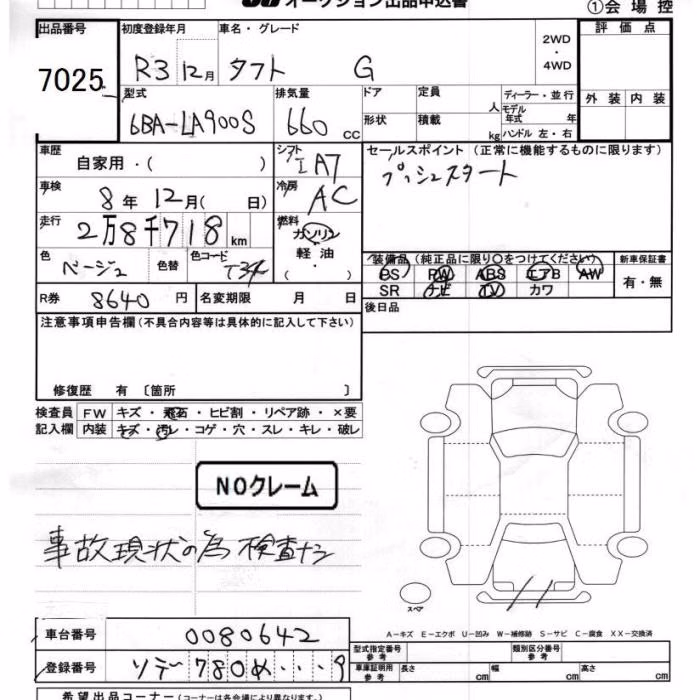 オークション出品申込書
①会場控
出品番号 初度登録年月 車名・グレード 2WD・4WD 評価点
7025 R3 12月 タフト G
型式 排気量 ドア 定員 人 ディーラー・並行 外装 内装
6BA-LA900S 660cc 形状 積載 kg モデル年式 年
ハンドル 左・右
車歴 自家用・( ) シフト IA7 セールスポイント(正常に機能するものに限ります)
プッシュスタート
車検 8年 12月( 日) 冷房 AC
走行 2万8千718km 燃料 ガソリン
軽油
( ・ )
色 ベージュ 色替 色コード T34
装備品(純正品に限り〇をつけてください) 新車保証書
PS PW ABS エアB AW 有・無
SR ナビ TV カワ
R券 8640円 名変期限 月 日 後日品
注意事項申告欄(不具合内容等は具体的に記入して下さい)
修復歴 有 〔箇所 〕
検査員 FW キズ・飛石・ヒビ割・リペア跡・×要
記入欄 内装 キズ・汚レ・コゲ・穴・スレ・キレ・破レ
NOクレーム
事故現状の為検査ナシ
スペア
A-キズ E-エクボ U-凹み W-補修跡 S-サビ C-腐食 XX-交換済
車台番号 0080642 型式指定番号 参考 類別区分番号 参考
登録番号 ソデ-780め・・・9 車庫証明用 参考 長さ cm 幅 cm 高さ cm
希望出品コーナー(コーナーは各会場により異なります。)